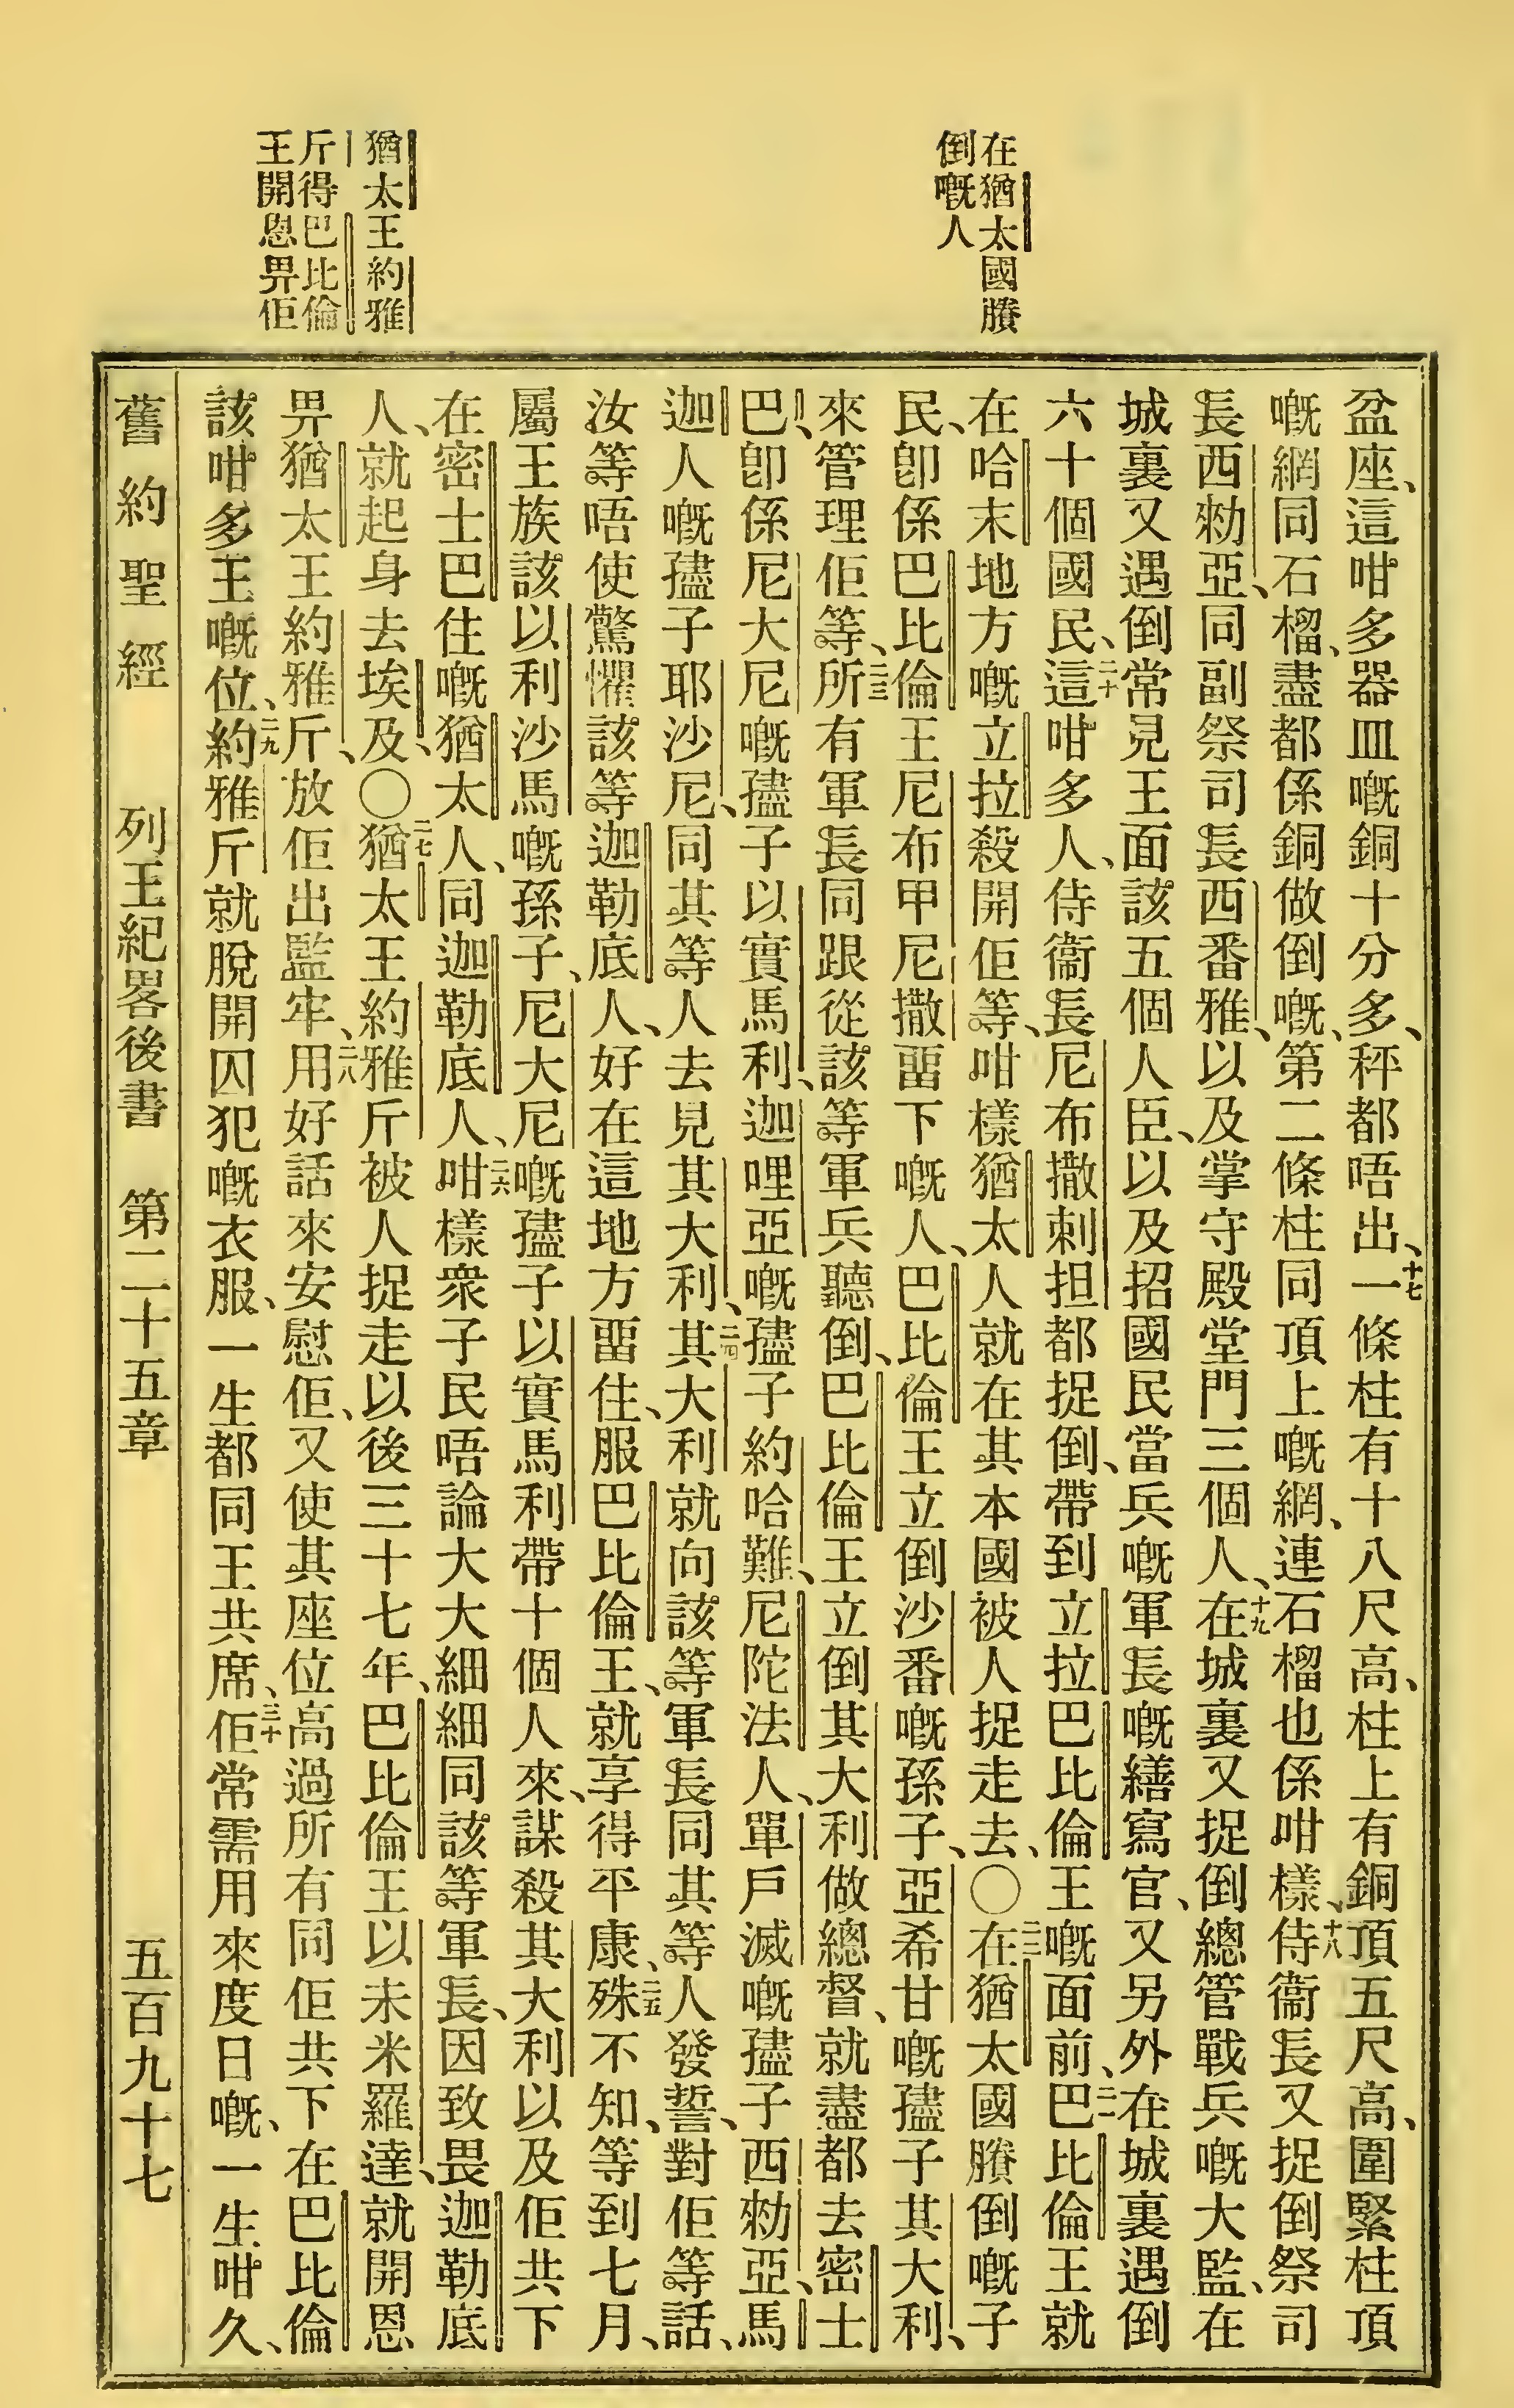 在猶太國賸
倒嘅人
猶太王約雅
斤得巴比倫
王開恩畀佢
盆座、這咁多器皿嘅銅十分多、秤都唔出、十七一條柱有十八尺高、柱上有銅頂五尺高、圍緊柱頂
嘅網同石榴、盡都係銅做倒嘅、第二條柱同頂上嘅網、連石榴也係咁樣、十八侍衞長又捉倒祭司
長西勑亞、同副祭司長西番雅、以及掌守殿堂門三個人、十九在城裏又捉倒總管戰兵嘅大監、在
城裏又遇倒常見王面該五個人臣、以及招國民當兵嘅軍長嘅繕寫官、又另外在城裏遇倒
六十個國民、二十這咁多人、侍衞長尼布撒剌担都捉倒、帶到立拉巴比倫王嘅面前、二一巴比倫王就
在哈末地方嘅立拉殺開佢等、咁樣猶太人就在其本國被人捉走去、〇二二在猶太國賸倒嘅子
民、卽係巴比倫王尼布甲尼撒畱下嘅人、巴比倫王立倒沙番嘅孫子、亞希甘嘅孻子其大利、
來管理佢等、二三所有軍長同跟從該等軍兵聽倒、巴比倫王立倒其大利做總督、就盡都去密士
巴、卽係尼大尼嘅孻子以實馬利、迦哩亞嘅孻子約哈難、尼陀法人、單戶滅嘅孻子西勑亞、馬
迦人嘅孻子耶沙尼、同其等人去見其大利、二四其大利就向該等軍長同其等人發誓、對佢等話、
汝等唔使驚懼該等迦勒底人、好在這地方畱住、服巴比倫王、就享得平康、二五殊不知、等到七月、
屬王族該以利沙馬嘅孫子、尼大尼嘅孻子以實馬利帶十個人來、謀殺其大利以及佢共下
在密士巴住嘅猶太人、同迦勒底人、二六咁樣衆子民唔論大大細細同該等軍長、因致畏迦勒底
人、就起身去埃及、〇二七猶太王約雅斤被人捉走以後三十七年、巴比倫王以未米羅達、就開恩
畀猶太王約雅斤、放佢出監牢、二八用好話來安慰佢、又使其座位高過所有同佢共下在巴比倫
該咁多王嘅位、二九約雅斤就脫開囚犯嘅衣服、一生都同王共席、三十佢常需用來度日嘅、一生咁久、
舊約聖經 列王紀畧後書 第二十五章 五百九十七